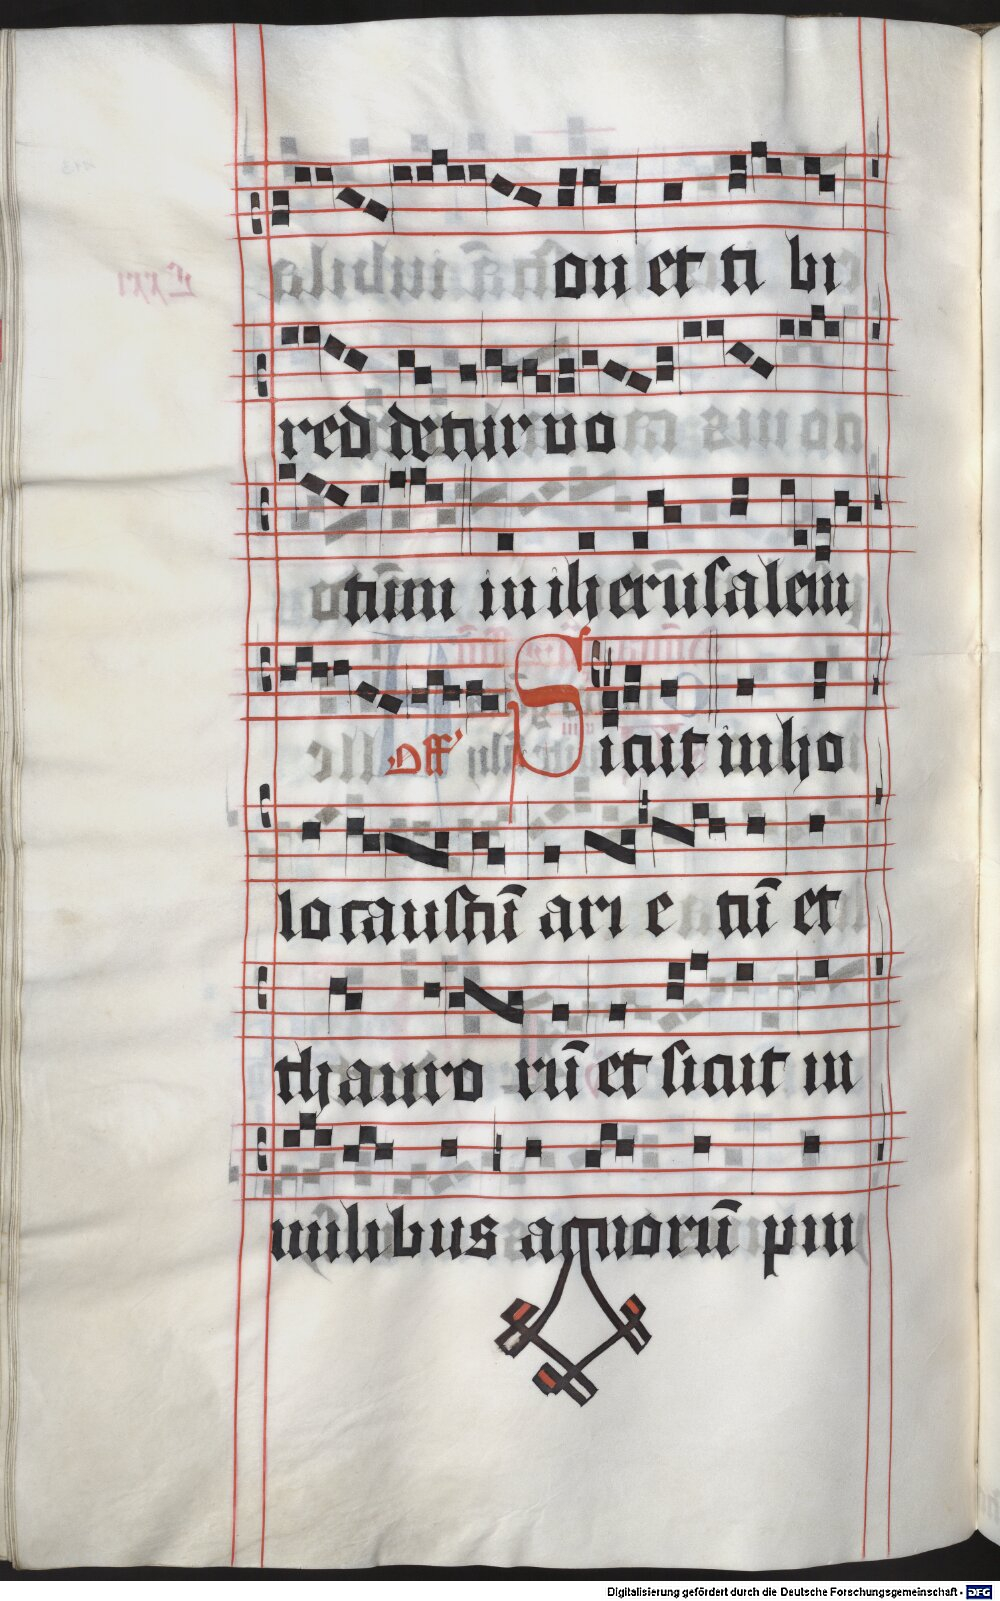 on et ti bi
red detur vo
tūm in iherusalem
Off' Sicut in ho
locaustū ari e tū et
thauro rū et sicut in
milibus agnorū pin
Digitalisierung gefördert durch die Deutsche Forschungsgemeinschaft - DFG